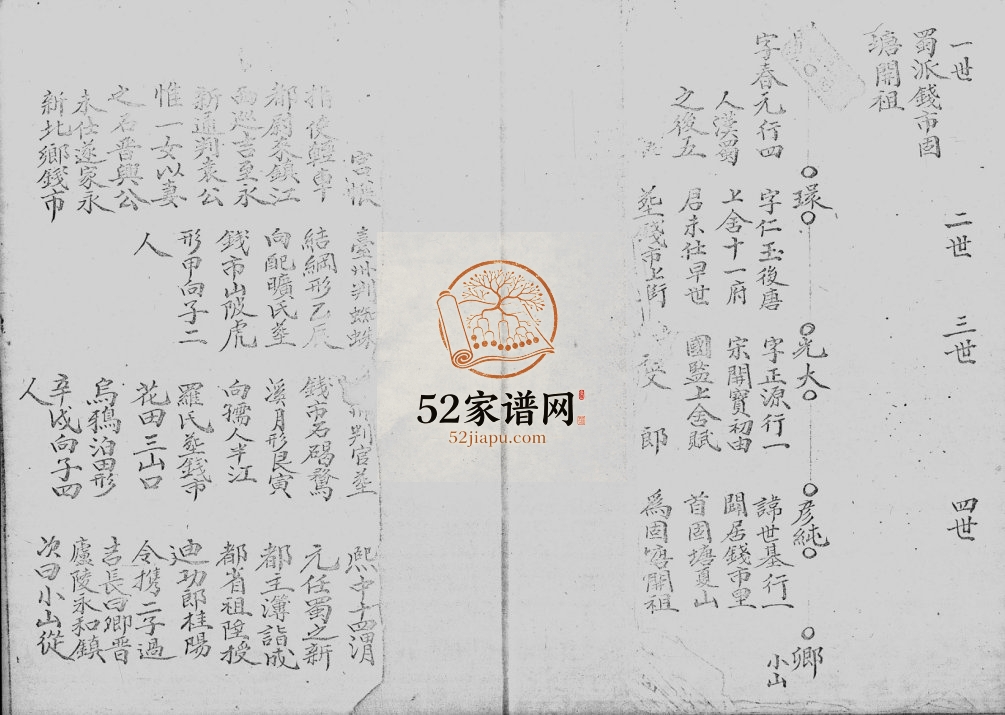 一世
二世
三世
四世
蜀派錢市固
塘開祖
璟
光大
彦純
卿
小山
字春元行四
人漢蜀
之後五
字仁玉後唐
上舍十一府
君未仕早世
塟錢市上街
字正源行一
宋開寶初由
國監上舍賦
郎
諱世基行一
閒居錢市里
首固塘夏山
爲固塘開祖
宫帳
指使輕車
都尉奈鎮江
西巡吉至永
新通判袁公
惟一女以妻
之名晋興公
未仕遂家永
新北鄉錢市
臺州判蜘蛛
結網形乙辰
向配曠氏塟
錢市山陂虎
形甲向子二
人
州判官塟
錢市石碣鶩
溪月形艮寅
向孺人半江
羅氏塟錢市
花田三山口
烏鴉泊田形
辛戌向子四
人
熙中十四渭
元任蜀之新
都主薄詣成
都省祖陞授
迪功郎桂陽
令携二子過
吉長曰卿晋
廬陵永和鎮
次曰小山從
52家谱网
52jiapu.com